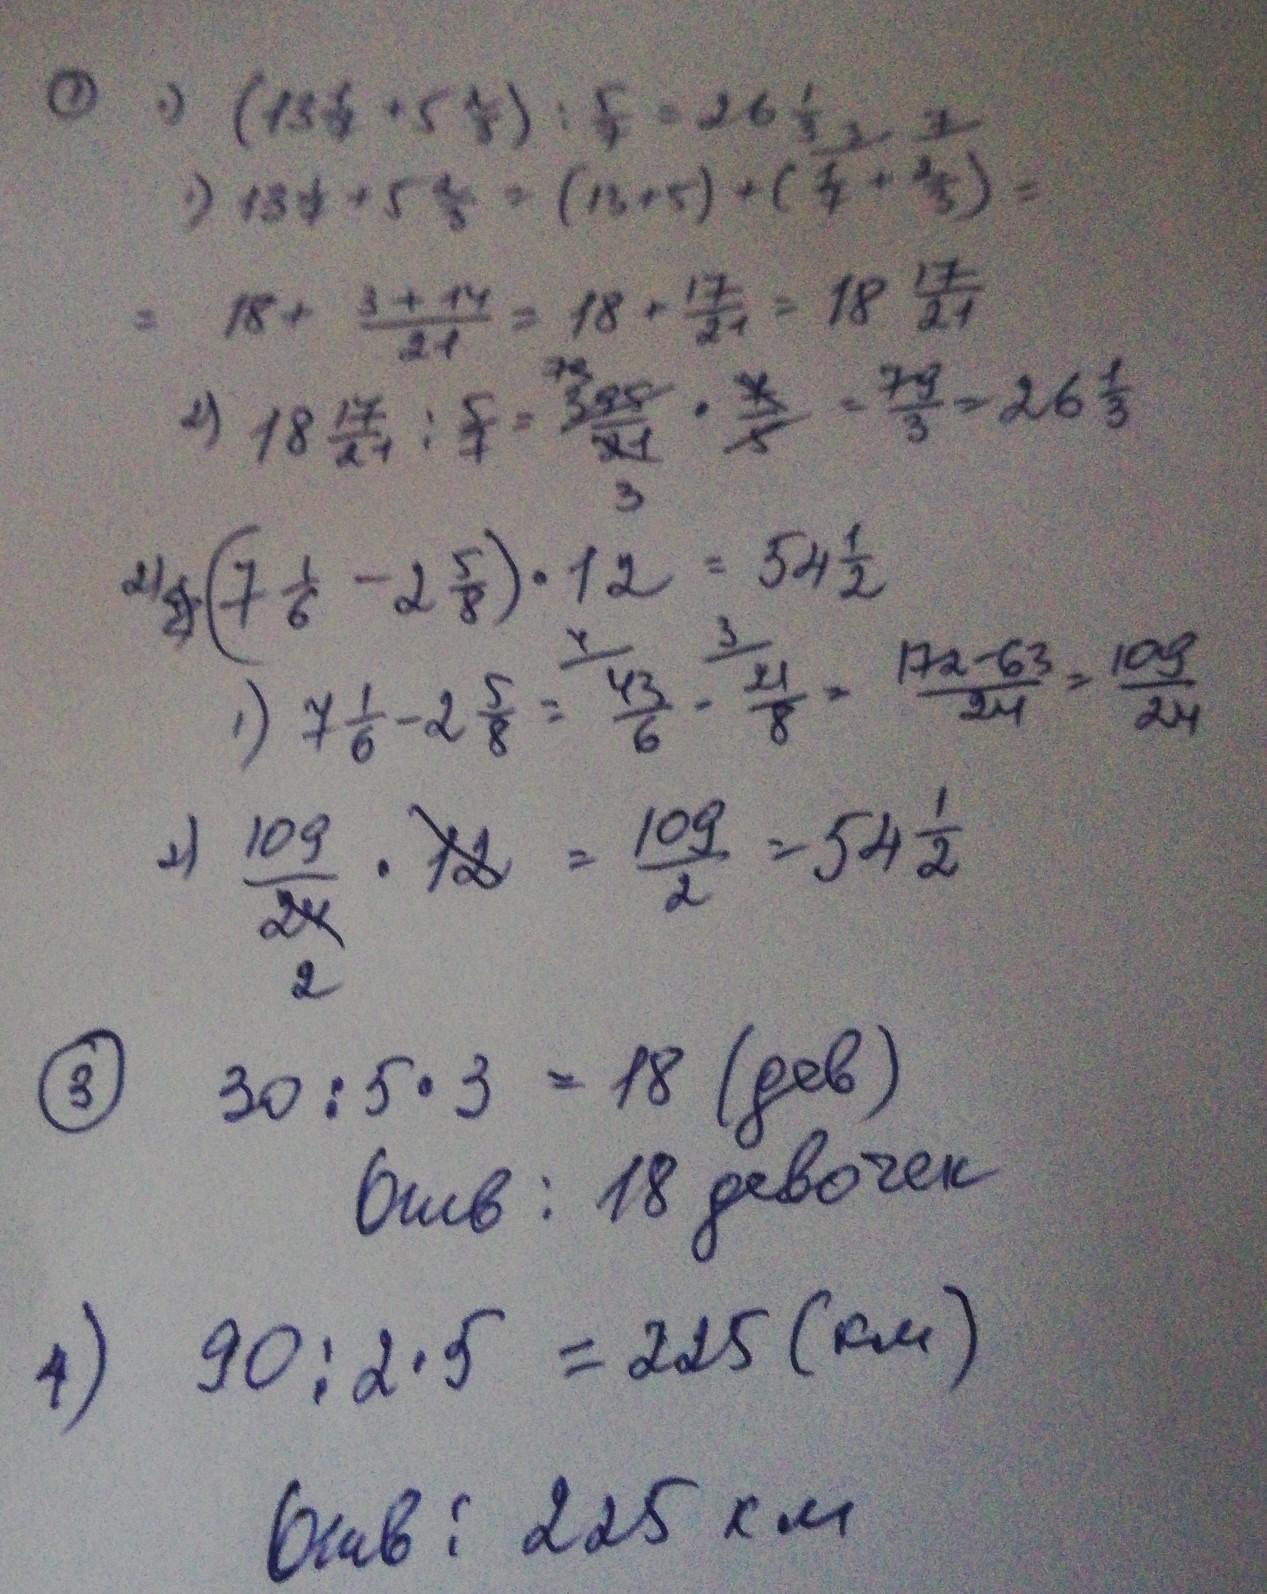 ① 1) (13 1/7 + 5 2/3) : 5/7 = 26 1/3
1) 13 1/7 + 5 2/3 = (13+5) + (1/7 + 2/3) =
= 18 + (3+14)/21 = 18 + 17/21 = 18 17/21
2) 18 17/21 : 5/7 = 395/21 · 7/5 = 79/3 = 26 1/3
79
3
2) (7 1/6 - 2 5/8) · 12 = 54 1/2
1) 7 1/6 - 2 5/8 = 43/6 - 21/8 = (172-63)/24 = 109/24
2) 109/24 · 12 = 109/2 = 54 1/2
2
③ 30 : 5 · 3 = 18 (дев)
Отв : 18 девочек
4) 90 : 2 · 5 = 225 (км)
Отв : 225 км